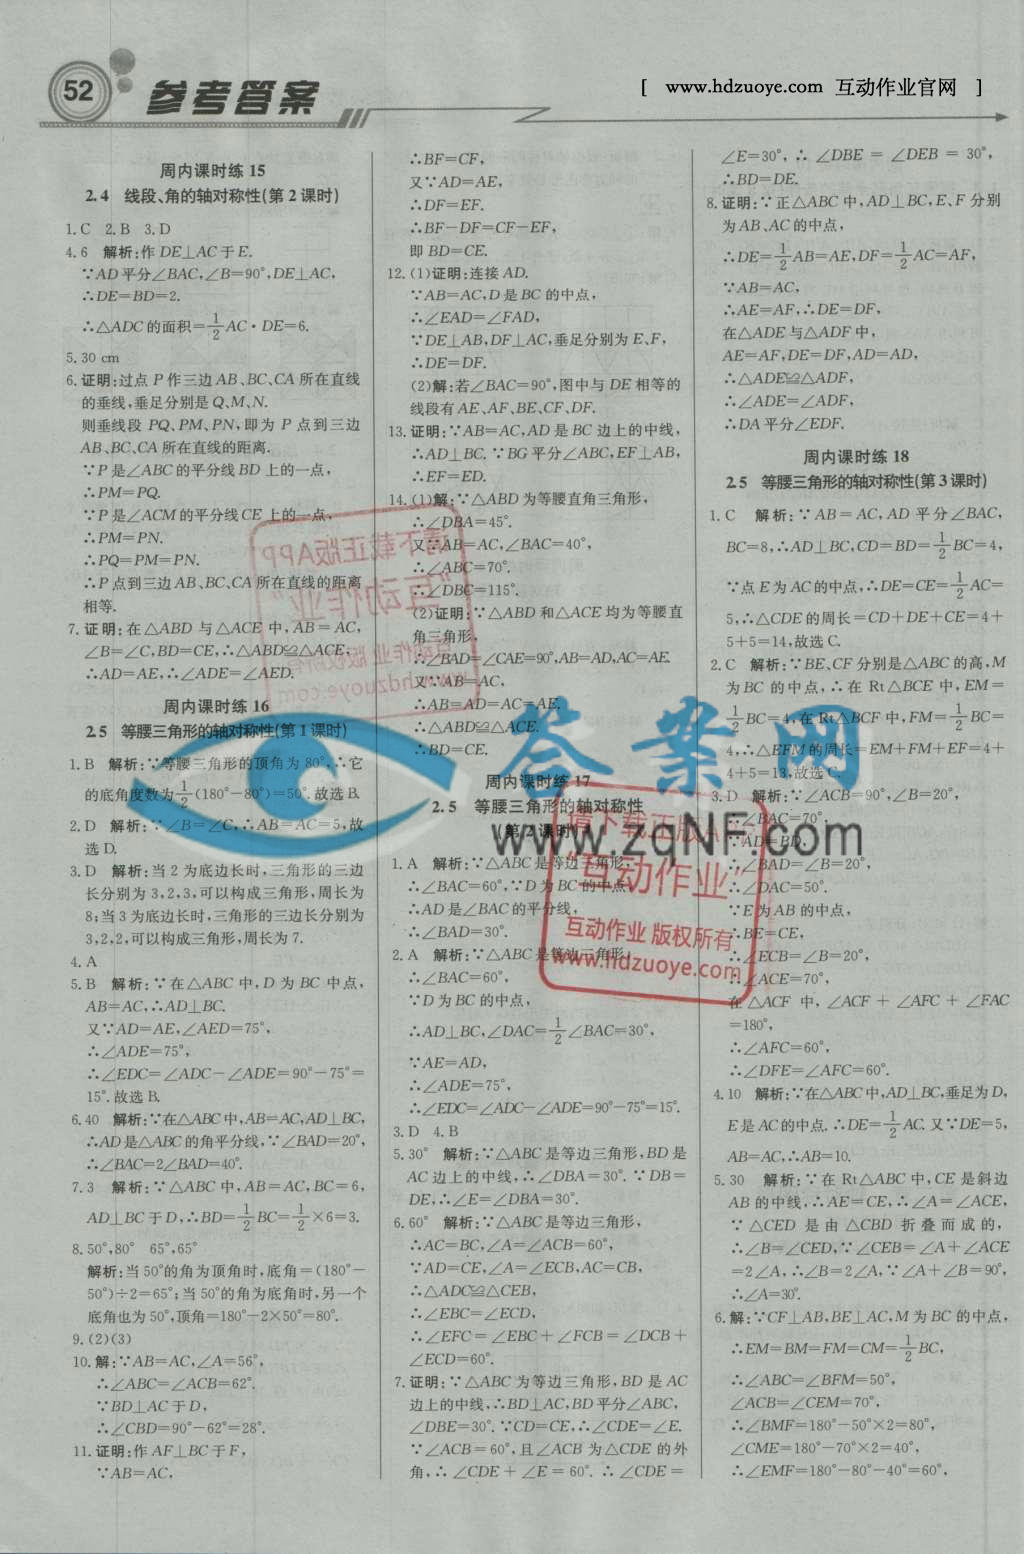 52
参考答案
[ www.hdzuoye.com 互动作业官网 ]
周内课时练 15
2.4 线段、角的轴对称性(第 2 课时)
1. C 2. B 3. D
4. 6 解析:作 DE⊥AC 于 E.
∵AD 平分∠BAC,∠B=90°,DE⊥AC,
∴DE=BD=2.
∴△ADC 的面积=1/2 AC·DE=6.
5. 30 cm
6. 证明:过点 P 作三边 AB、BC、CA 所在直线
的垂线,垂足分别是 Q、M、N.
则垂线段 PQ、PM、PN,即为 P 点到三边
AB、BC、CA 所在直线的距离.
∵P 是∠ABC 的平分线 BD 上的一点,
∴PM=PQ.
∵P 是∠ACM 的平分线 CE 上的一点,
∴PM=PN.
∴PQ=PM=PN.
∴P 点到三边 AB、BC、CA 所在直线的距离
相等.
7. 证明:在△ABD 与△ACE 中,AB=AC,
∠B=∠C,BD=CE,∴△ABD≌△ACE,
∴AD=AE,∴∠ADE=∠AED.
周内课时练 16
2.5 等腰三角形的轴对称性(第 1 课时)
1. B 解析:∵等腰三角形的顶角为 80°,∴它
的底角度数为1/2(180°-80°)=50°.故选 B.
2. D 解析:∵∠B=∠C,∴AB=AC=5,故
选 D.
3. D 解析:当 2 为底边长时,三角形的三边
长分别为 3,2,3,可以构成三角形,周长为
8;当 3 为底边长时,三角形的三边长分别为
3,2,2,可以构成三角形,周长为 7.
4. A
5. B 解析:∵在△ABC 中,D 为 BC 中点,
AB=AC,∴AD⊥BC.
又∵AD=AE,∠AED=75°,
∴∠ADE=75°,
∴∠EDC=∠ADC-∠ADE=90°-75°=
15°.故选 B.
6. 40 解析:∵在△ABC 中,AB=AC,AD⊥BC,
∴AD 是△ABC 的角平分线,∵∠BAD=20°,
∴∠BAC=2∠BAD=40°.
7. 3 解析:∵△ABC 中,AB=AC,BC=6,
AD⊥BC 于 D,∴BD=1/2 BC=1/2×6=3.
8. 50°,80° 65°,65°
解析:当 50°的角为顶角时,底角=(180°-
50°)÷2=65°;当 50°的角为底角时,另一个
底角也为 50°,顶角=180°-2×50°=80°.
9. (2)(3)
10. 解:∵AB=AC,∠A=56°,
∴∠ABC=∠ACB=62°.
∵BD⊥AC 于 D,
∴∠CBD=90°-62°=28°.
11. 证明:作 AF⊥BC 于 F,
∵AB=AC,
∴BF=CF,
又∵AD=AE,
∴DF=EF.
∴BF-DF=CF-EF,
即 BD=CE.
12. (1)证明:连接 AD.
∵AB=AC,D 是 BC 的中点,
∴∠EAD=∠FAD,
∵DE⊥AB,DF⊥AC,垂足分别为 E、F,
∴DE=DF.
(2)解:若∠BAC=90°,图中与 DE 相等的
线段有 AE、AF、BE、CF、DF.
13. 证明:∵AB=AC,AD 是 BC 边上的中线,
∴AD⊥BC. ∵BG 平分∠ABC,EF⊥AB,
∴EF=ED.
14. (1)解:∵△ABD 为等腰直角三角形,
∴∠DBA=45°.
又∵AB=AC,∠BAC=40°,
∴∠ABC=70°.
∴∠DBC=115°.
(2)证明:∵△ABD 和△ACE 均为等腰直
角三角形,
∴∠BAD=∠CAE=90°,AB=AD,AC=AE.
又∵AB=AC,
∴AB=AD=AC=AE.
∴△ABD≌△ACE.
∴BD=CE.
周内课时练 17
2.5 等腰三角形的轴对称性
(第 2 课时)
1. A 解析:∵△ABC 是等边三角形,
∴∠BAC=60°,∵D 为 BC 的中点,
∴AD 是∠BAC 的平分线,
∴∠BAD=30°.
2. A 解析:∵△ABC 是等边三角形,
∴∠BAC=60°,
∵D 为 BC 的中点,
∴AD⊥BC,∠DAC=1/2∠BAC=30°,
∵AE=AD,
∴∠ADE=75°,
∴∠EDC=∠ADC-∠ADE=90°-75°=15°.
3. D 4. B
5. 30° 解析:∵△ABC 是等边三角形,BD 是
AC 边上的中线,∴∠DBA=30°. ∵DB=
DE,∴∠E=∠DBA=30°.
6. 60° 解析:∵△ABC 是等边三角形,
∴AC=BC,∠A=∠ACB=60°,
∵AD=CE,∠A=∠ECB,AC=CB,
∴△ADC≌△CEB,
∴∠EBC=∠ECD,
∴∠EFC=∠EBC+∠FCB=∠DCB+
∠ECD=60°.
7. 证明:∵△ABC 为等边三角形,BD 是 AC
边上的中线,∴BD⊥AC,BD 平分∠ABC,
∠DBE=30°. ∵CD=CE,∴∠CDE=∠E.
∵∠ACB=60°,且∠ACB 为△CDE 的外
角,∴∠CDE+∠E=60°. ∴∠CDE=
∠E=30°,∴∠DBE=∠DEB=30°,
∴BD=DE.
8. 证明:∵正△ABC 中,AD⊥BC,E、F 分别
为 AB、AC 的中点,
∴DE=1/2 AB=AE,DF=1/2 AC=AF,
∵AB=AC,
∴AE=AF,∴DE=DF,
在△ADE 与△ADF 中,
AE=AF,DE=DF,AD=AD,
∴△ADE≌△ADF,
∴∠ADE=∠ADF,
∴DA 平分∠EDF.
周内课时练 18
2.5 等腰三角形的轴对称性(第 3 课时)
1. C 解析:∵AB=AC,AD 平分∠BAC,
BC=8,∴AD⊥BC,CD=BD=1/2 BC=4,
∵点 E 为 AC 的中点,∴DE=CE=1/2 AC=
5,∴△CDE 的周长=CD+DE+CE=4+
5+5=14,故选 C.
2. C 解析:∵BE、CF 分别是△ABC 的高,M
为 BC 的中点,∴在 Rt△BCE 中,EM=
1/2 BC=4,在 Rt△BCF 中,FM=1/2 BC=
4,∴△EFM 的周长=EM+FM+EF=4+
4+5=13,故选 C.
3. D 解析:∵∠ACB=90°,∠B=20°,
∴∠BAC=70°.
∵AD=BD,
∴∠BAD=∠B=20°,
∴∠DAC=50°.
∵E 为 AB 的中点,
∴BE=CE,
∴∠ECB=∠B=20°,
∴∠ACE=70°,
在△ACF 中,∠ACF+∠AFC+∠FAC
=180°,
∴∠AFC=60°,
∴∠DFE=∠AFC=60°.
4. 10 解析:∵在△ABC 中,AD⊥BC,垂足为 D,
E 是 AC 的中点.∴DE=1/2 AC. 又∵DE=5,
AB=AC,∴AB=10.
5. 30 解析:∵在 Rt△ABC 中,CE 是斜边
AB 的中线,∴AE=CE,∴∠A=∠ACE,
∵△CED 是由△CBD 折叠而成的,
∴∠B=∠CED,∵∠CEB=∠A+∠ACE
=2∠A,∴∠B=2∠A,∵∠A+∠B=90°,
∴∠A=30°.
6. 解:∵CF⊥AB,BE⊥AC,M 为 BC 的中点,
∴EM=BM=FM=CM=1/2 BC,
∴∠ABC=∠BFM=50°,
∠ACB=∠CEM=70°,
∴∠BMF=180°-50°×2=80°,
∠CME=180°-70°×2=40°,
∴∠EMF=180°-80°-40°=60°,
请下载正版APP
"互动作业"
互动作业 版权所有
www.hdzuoye.com
答案网
www.zqNF.com
请下载正版APP
"互动作业"
互动作业 版权所有
www.hdzuoye.com